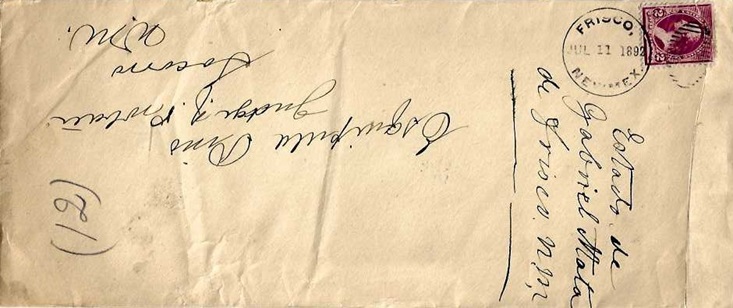 FRISCO,
JUL 11 1892
NEW MEX.
Estado de
Gabriel Mata
de Frisco. N.M.
Esquipula Pino
Judge of Probate
Socorro
N.M.
(162)